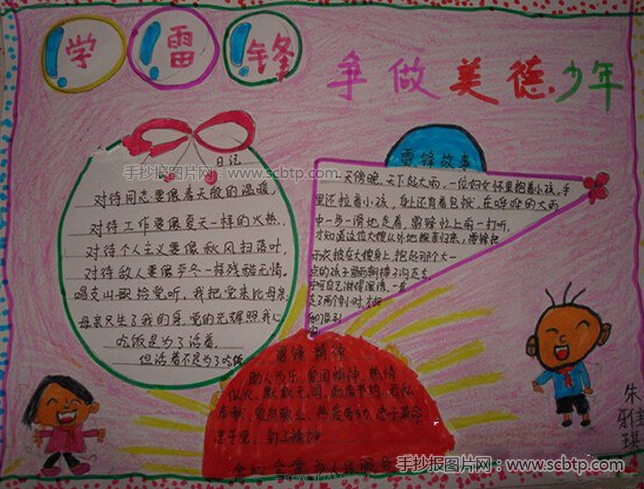 学雷锋
争做美德少年
日记
对待同志要像春天般的温暖,
对待工作要像夏天一样的火热,
对待个人主义要像秋风扫落叶,
对待敌人要像严冬一样残酷无情。
唱支山歌给党听,我把党来比母亲
母亲只生了我的身,党的光辉照我心
吃饭是为了活着
但活着不是为了吃饭
雷锋故事
一天傍晚,天下起大雨,一位妇女怀里抱着小孩,手
里还拉着小孩,身上还背着包袱,在哗哗的大雨
中一步一滑地走着,雷锋忙上前一打听,
才知道这位大嫂从外地探亲归来,雷锋把
雨衣披在大嫂身上,抱起那个大一
点的孩子冒雨朝
自己淋得湿透,一直
走了两个小时,才把
雷锋精神
助人为乐、
默默无闻、
奉献、爱岗敬业、
朱雅琪
手抄报图片网:www.scbtp.com
手抄报图片网:www.scbtp.com